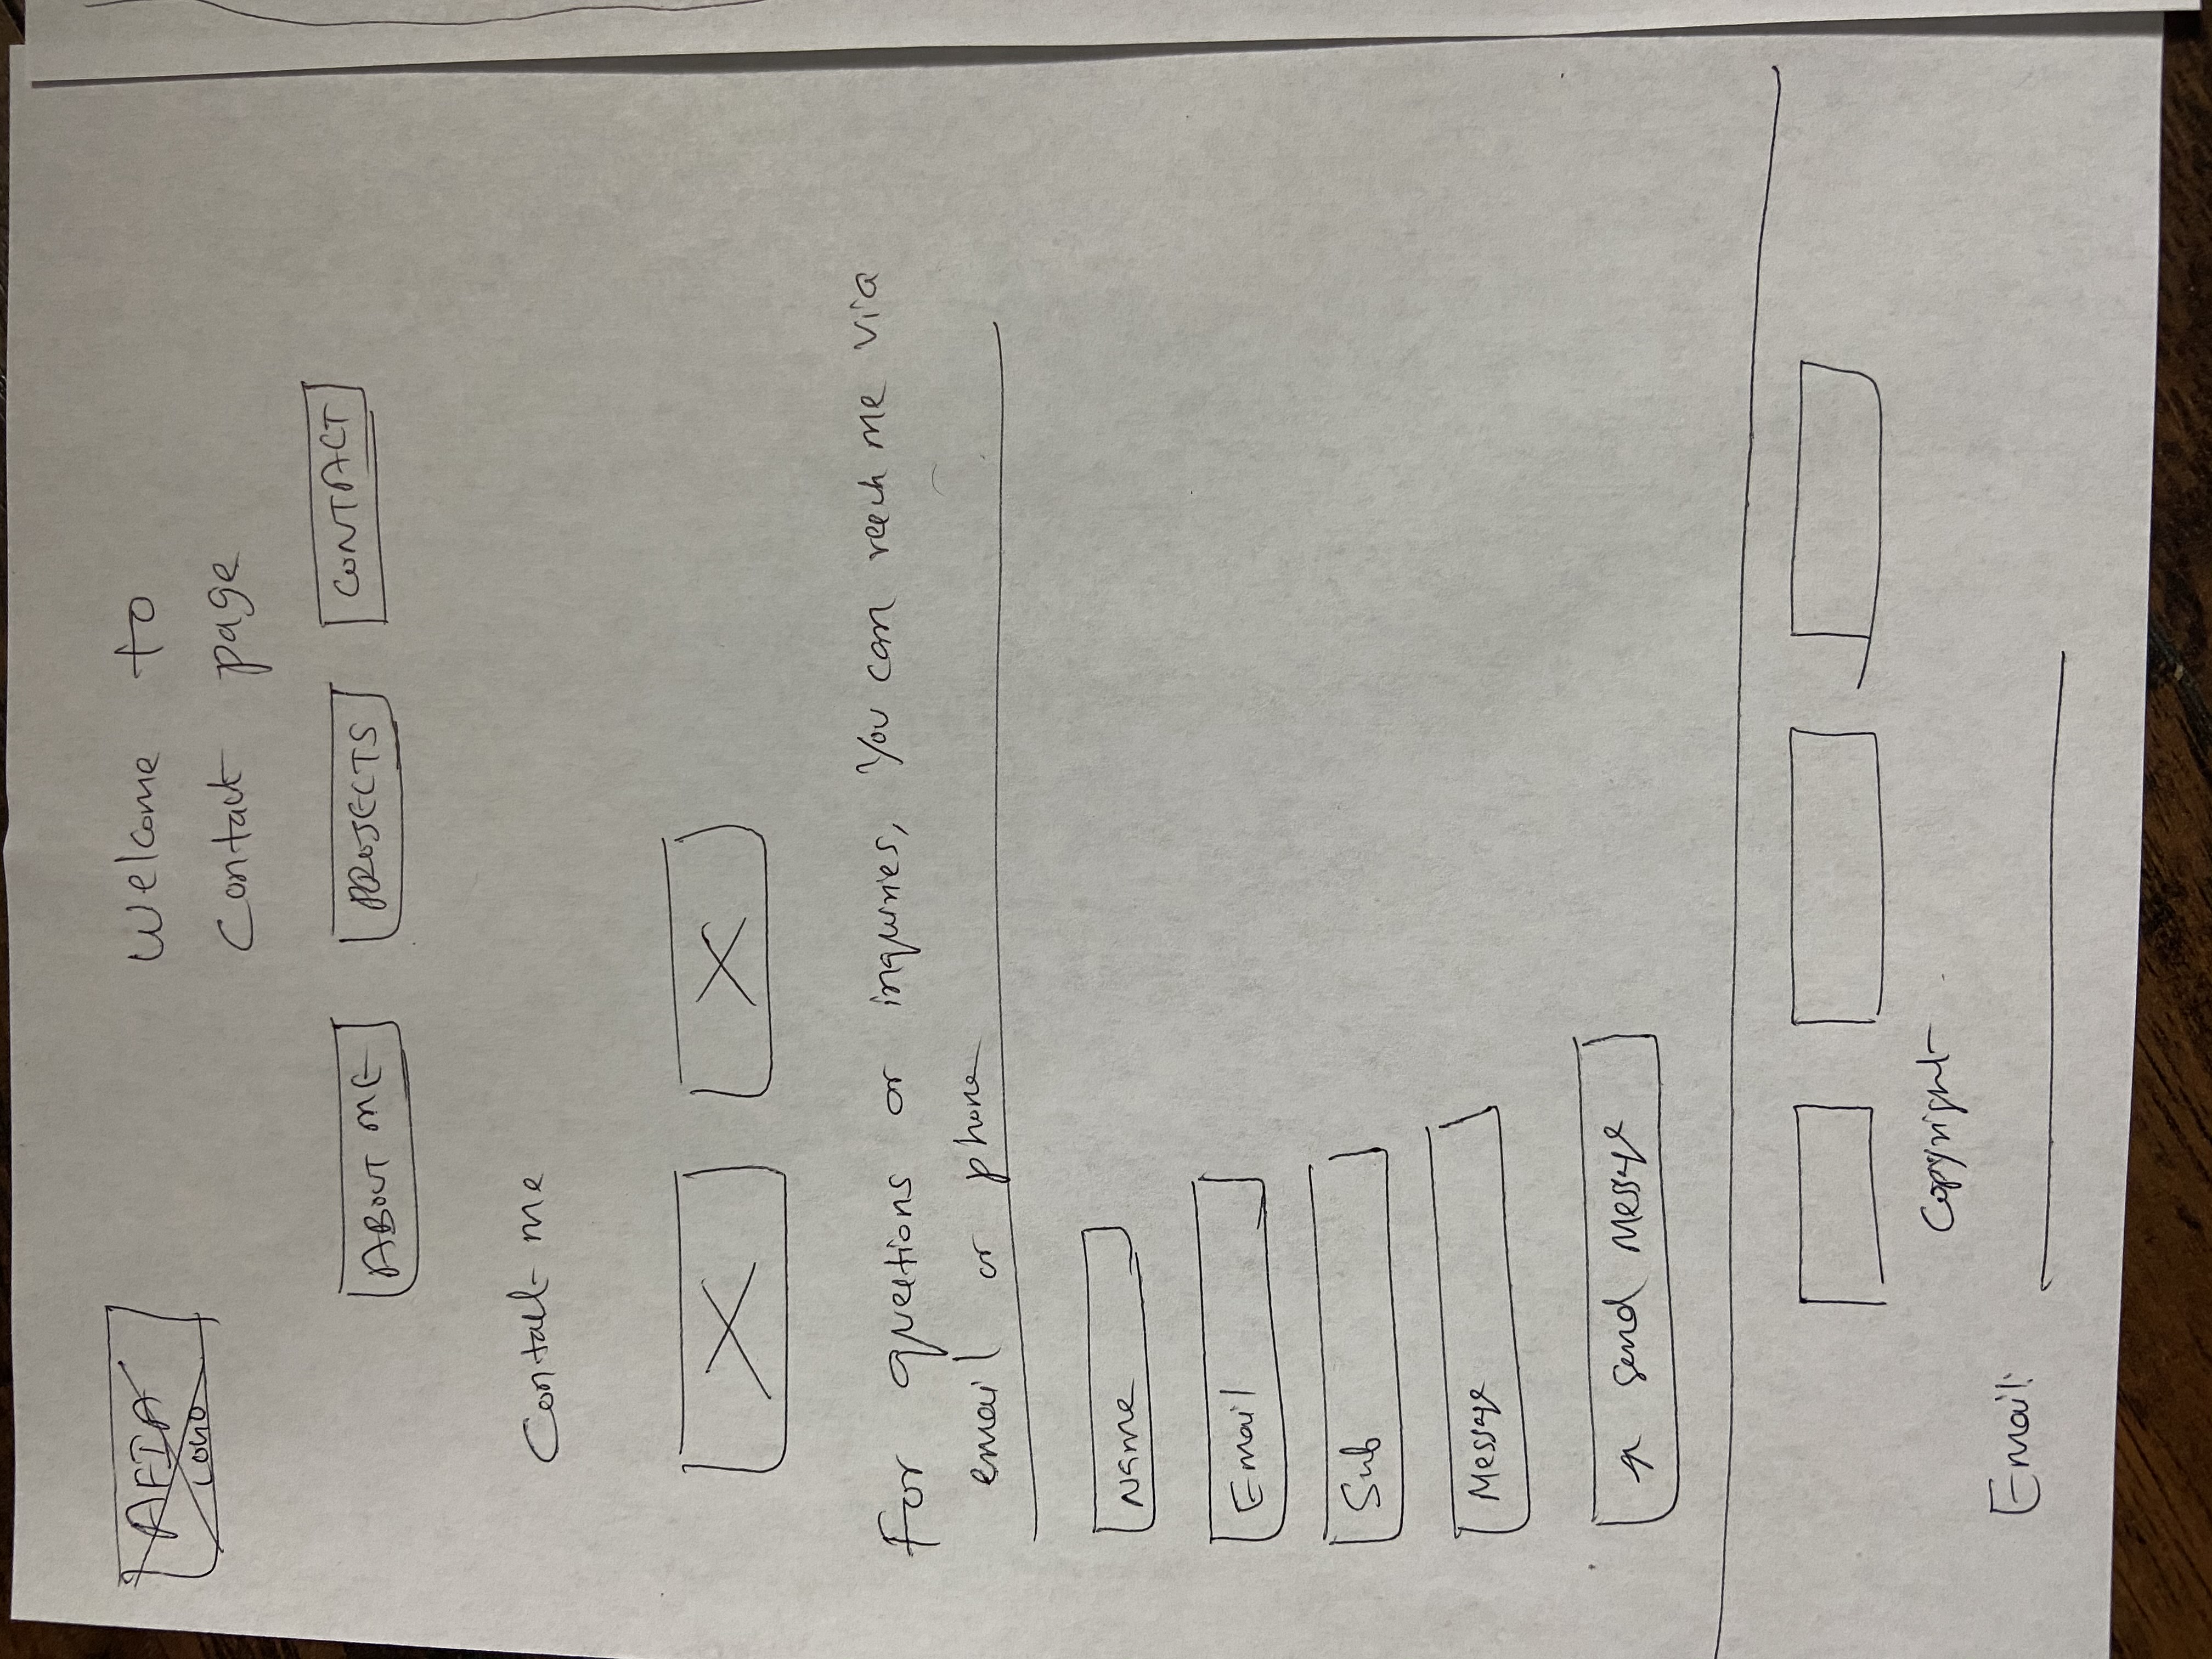 AFIA
LOGO
Welcome to
Contact page
ABOUT ME
PROJECTS
CONTACT
Contact me
For questions or inquiries, You can reach me via
email or phone
Name
Email
Sub
Message
Send Message
Copyright
Email: